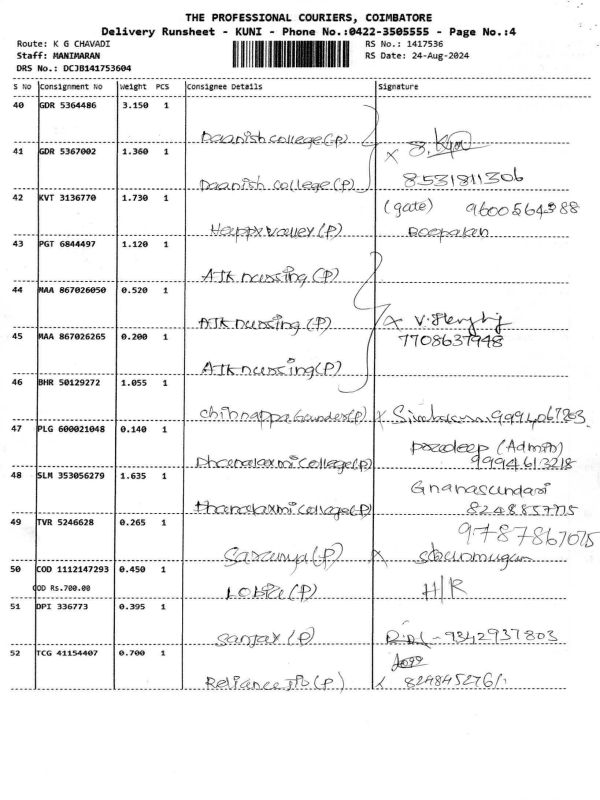 THE PROFESSIONAL COURIERS, COIMBATORE
Delivery Runsheet - KUNI - Phone No.:0422-3505555 - Page No.:4
Route: K G CHAVADI RS No.: 1417536
Staff: MANIMARAN RS Date: 24-Aug-2024
DRS No.: DCJB141753604
S No Consignment No Weight PCS Consignee Details Signature
40 GDR 5364486 3.150 1
Daanish college (P)
41 GDR 5367002 1.360 1
Daanish college (P) 8531811306
42 KVT 3136770 1.730 1
(gate) 9600564388
Happy valley (P)
43 PGT 6844497 1.120 1
AJK nursing (P)
44 MAA 867026050 0.520 1
AJK nursing (P)
45 MAA 867026265 0.200 1 7708637948
AJK nursing (P)
46 BHR 50129272 1.055 1
chinnappa Gounder (P)
47 PLG 600021048 0.140 1
Pradeep (Admin)
Dhanalaxmi college (P) 9994613218
48 SLM 353056279 1.635 1
Gnanasundari
thanalaxmi college (P) 8248857775
49 TVR 5246628 0.265 1
9787867075
Saranya (P)
50 COD 1112147293 0.450 1
COD Rs.700.00 H/R
(P)
51 DPI 336773 0.395 1
Sanjay (P) 9342937803
52 TCG 41154407 0.700 1
Reliance Jio (P)